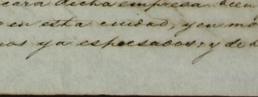 cara dicha empresa bien
o en esta ciudad, y en mo
nos ya espresados, y de